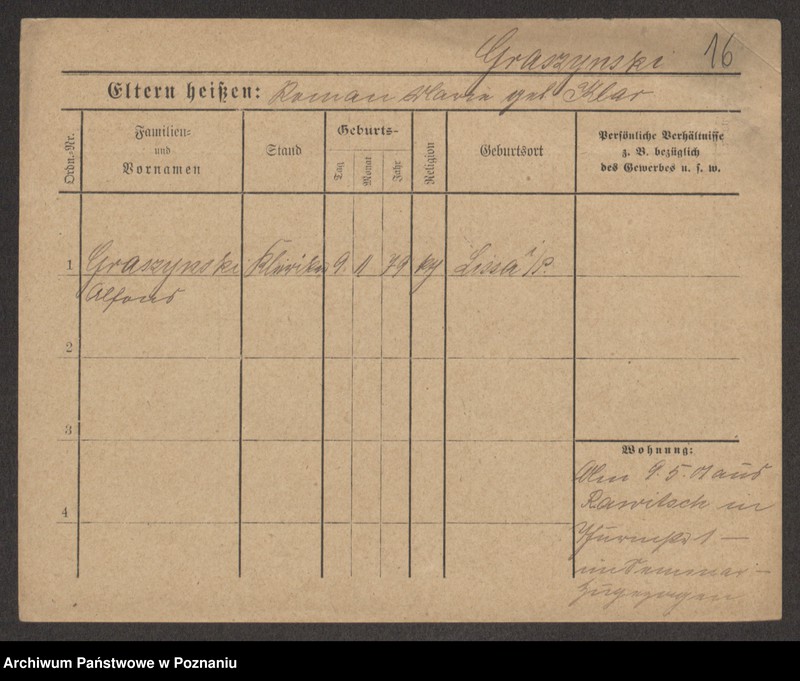 Graszynski 16
Eltern heißen: Roman Marie geb Klar
Ordn.-Nr.
Familien-
und
Vornamen
Stand
Geburts-
Tag
Monat
Jahr
Religion
Geburtsort
Persönliche Verhältnisse
z. B. bezüglich
des Gewerbes u. s. w.
1 Graszynski Kleriker 9. 11 79 Lissa i/P.
Alfons
2
3
Wohnung:
Am 9. 5. 01 aus
Rawitsch in
4
im Seminar
zugezogen
Archiwum Państwowe w Poznaniu